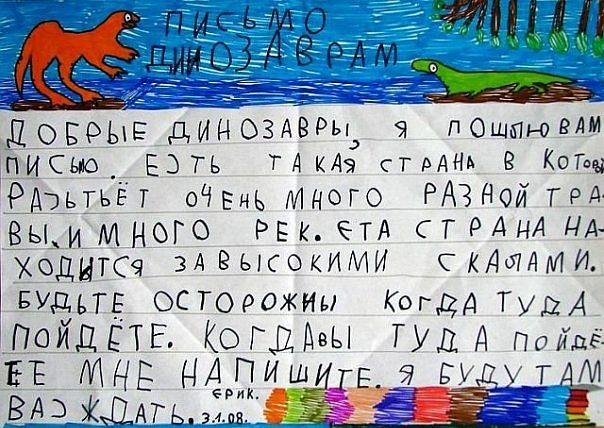 ПИСЬМО
ДИНОЗАВРАМ
ДОБРЫЕ ДИНОЗАВРЫ, Я ПОШЛЮ ВАМ
ПИСЬЮ. ЕСТЬ ТАКАЯ СТРАНА В КОТОВОЙ
РАЗЬТЬЁТ ОЧЕНЬ МНОГО РАЗНОЙ ТРА-
ВЫ. И МНОГО РЕК. ЄТА СТРАНА НА-
ХОДИТСЯ ЗА ВЫСОКИМИ СКАЛАМИ.
БУДЬТЕ ОСТОРОЖНЫ КОГДА ТУДА
ПОЙДЁТЕ. КОГДА ВЫ ТУДА ПОЙДЁ-
ТЕ МНЕ НАПИШИТЕ. Я БУДУ ТАМ
ВАС ЖДАТЬ. ЄРИК. 3.1.08.